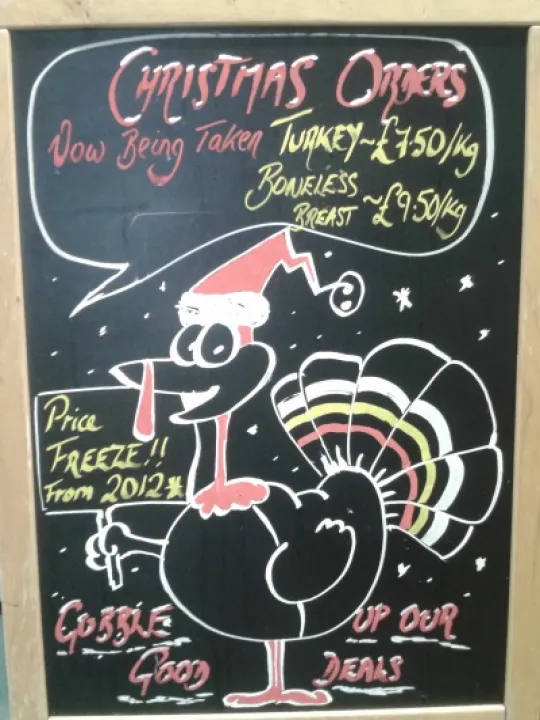 CHRISTMAS ORDERS
Now Being Taken TURKEY~£7.50/Kg
BONELESS
BREAST ~£9.50/Kg
Price
FREEZE!!
From 2012*
GOBBLE UP OUR
GOOD DEALS